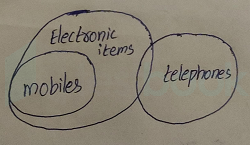 Electronic
items
mobiles
telephones